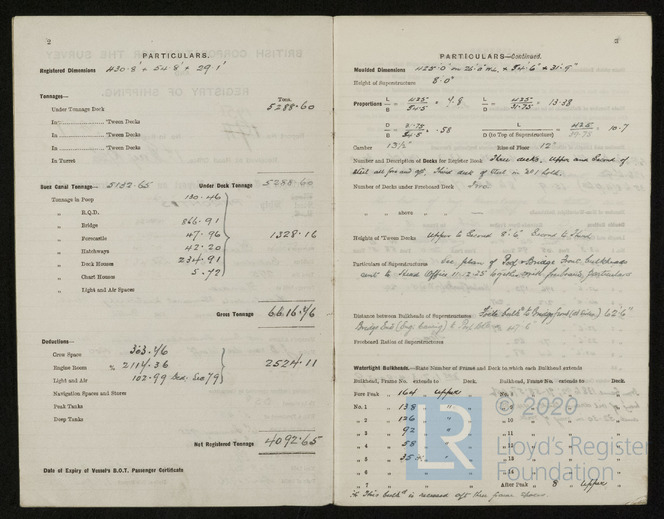 2
PARTICULARS.
Registered Dimensions 430.8' x 54.8' x 29.1'
Tonnages—
Tons.
Under Tonnage Deck 5288.60
In 'Tween Decks
In 'Tween Decks
In 'Tween Decks
In Turret
Suez Canal Tonnage— 5157.65 Under Deck Tonnage 5288.60
Tonnage in Poop 130.46
„ R.Q.D.
„ Bridge 866.91
„ Forecastle 47.96 1328.16
„ Hatchways 42.20
„ Deck Houses 234.91
„ Chart Houses 5.72
„ Light and Air Spaces
Gross Tonnage 6616.76
Deductions—
Crew Space 303.46
Engine Room % 2114.36 2524.11
Light and Air 102.99
Navigation Spaces and Stores
Peak Tanks
Deep Tanks
Net Registered Tonnage 4092.65
Date of Expiry of Vessel's B.O.T. Passenger Certificate
PARTICULARS—Continued.
Moulded Dimensions 425'.0" x 54'.6" x 31'.9"
Height of Superstructure 8'.0"
Proportions L/B = 425/54.5 = 7.8 L/D = 425/31.75 = 13.38
D/B = 31.75/54.5 = .58 L/D (to Top of Superstructure) = 425/39.75 = 10.7
Camber 13½" Rise of Floor 12"
Number and Description of Decks for Register Book Three decks, Upper and Second of
steel all fore and aft, Third deck of steel in No 1 hold.
Number of Decks under Freeboard Deck
„ „ above „ —
Heights of 'Tween Decks Upper to Second 8'.6" Second to Third
Particulars of Superstructures See plan of Poop & Bridge Front bulkheads
sent to Head Office 11-2-25 together with particulars
Distance between Bulkheads of Superstructures 62'6"
Bridge 47.6
Freeboard Ratios of Superstructures
Watertight Bulkheads.—State Number of Frame and Deck to which each Bulkhead extends
Bulkhead, Frame No. extends to Deck. Bulkhead, Frame No. extends to Deck.
Fore Peak „ 164 Upper „ No. 8 „ „
No. 1 „ 138 „ „ „ 9 „ „
„ 2 „ 126 „ „ „ 10 „ „
„ 3 „ 92 „ „
„ 4 „ 58 „ „
„ 5 „ 35 x „ „
„ 6 „ „ „ 14
„ 7 „ „ After Peak „ 8 „ Upper „
x This bulkhd is recessed aft three frame spaces
© 2020
LR
Lloyd's Register
Foundation